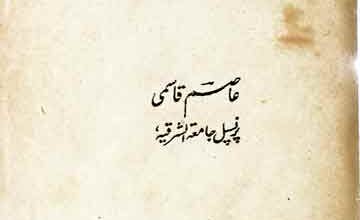 عاصم قاسمی
پرنسپل جامعۃ الشرقیہ،